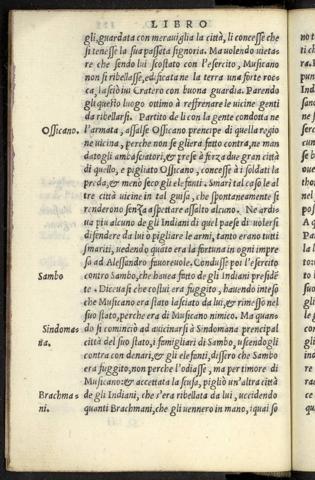 LIBRO
gli, guardata con meraviglia la città, li concesse che
si tenesse la sua passata signoria. Ma uolendo uieta-
re che sendo lui scostato con l'esercito, Musicano
non si ribellasse, edificata ne la terra una forte roc-
ca, lasciò iui Cratero con buona guardia. Parendo
gli questo luogo ottimo à reffrenare le uicine genti
da ribellarsi. Partito de li con la gente condotta ne
Ossicano.
l'armata, assalse Ossicano prencipe di quella regio
ne uicina, perche non se gliera fatto contra, ne man
datogli ambasciatori, & prese à forza due gran città
di quello, e pigliato Ossicano, concesse à i soldati la
preda, & menò seco gli elefanti. Smarì tal caso le al
tre città uicine in tal guisa, che spontaneamente si
renderono senza aspettare assalto alcuno. Ne ardi-
ua piu alcuno de gli Indiani di quel paese di uolersi
difendere da lui o pigliare le armi, tanto erano tutti
smariti, uedendo quato era la fortuna in ogni impre
sa ad Alessandro fauoreuole. Condusse poi l'esercito
Sambo
contro Sambo, che hauea fatto de gli Indiani preside
te. Diceuasi che costui era fuggito, hauendo inteso
che Musicano era stato lasciato da lui, & rimesso nel
suo stato, perche era di Musicano nimico. Ma quan-
Sindoma-
na.
do si cominciò ad auicinarsi à Sindomana prencipal
città del suo stato, i famigliari di Sambo, uscendogli
contra con denari, & gli elefanti, dissero che Sambo
era fuggito, non perche l'odiasse, ma per timore di
Musicano: & accettata la scusa, pigliò un'altra città
Brachma-
ni.
de gli Indiani, che s'era ribellata da lui, uccidendo
quanti Brachmani, che gli uennero in mano, i quai so